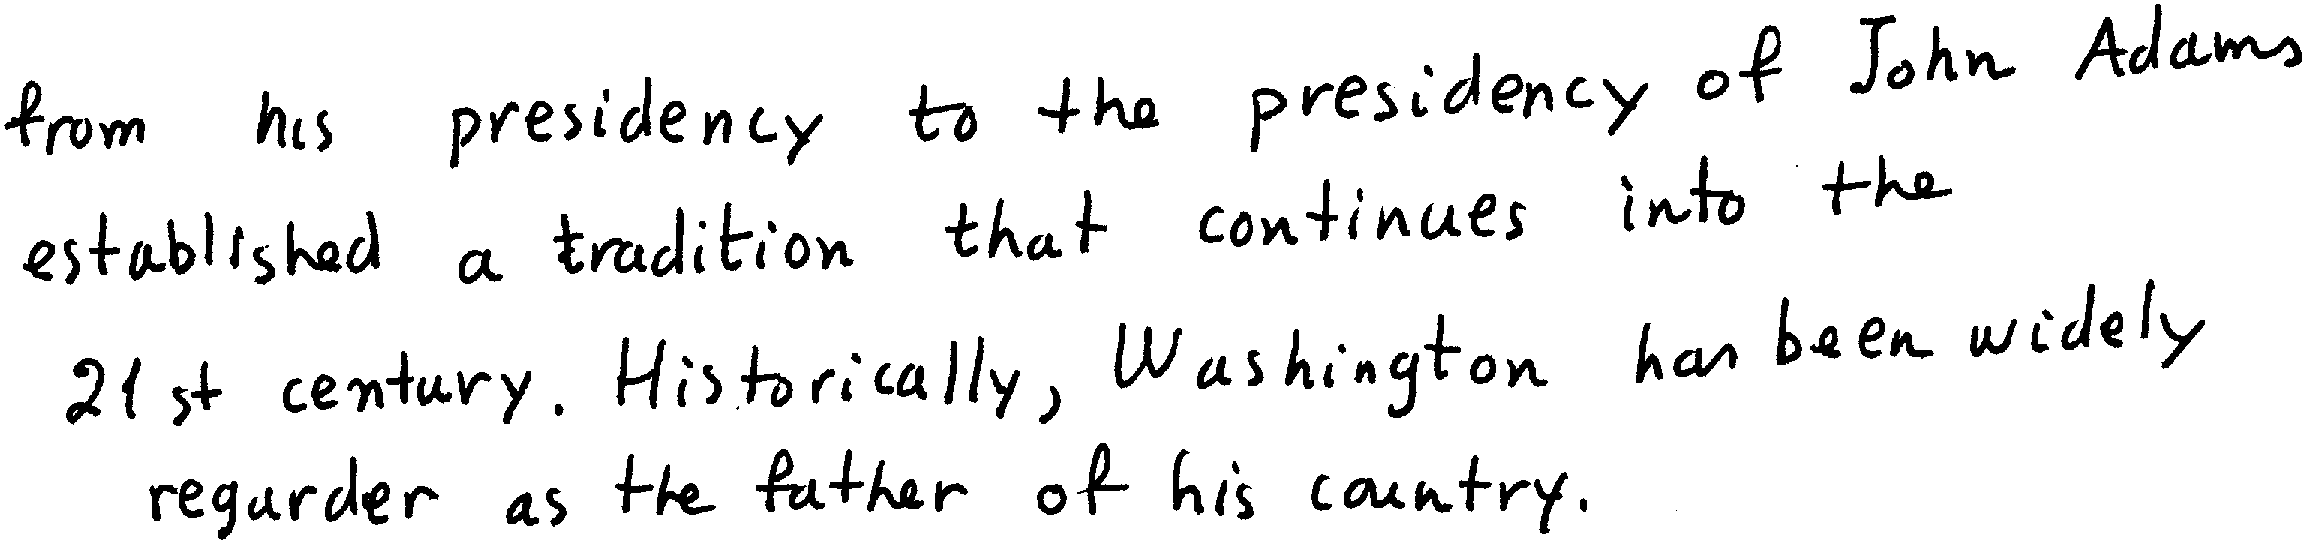 from his presidency to the presidency of John Adams
established a tradition that continues into the
21st century. Historically, Washington has been widely
regarder as the father of his country.